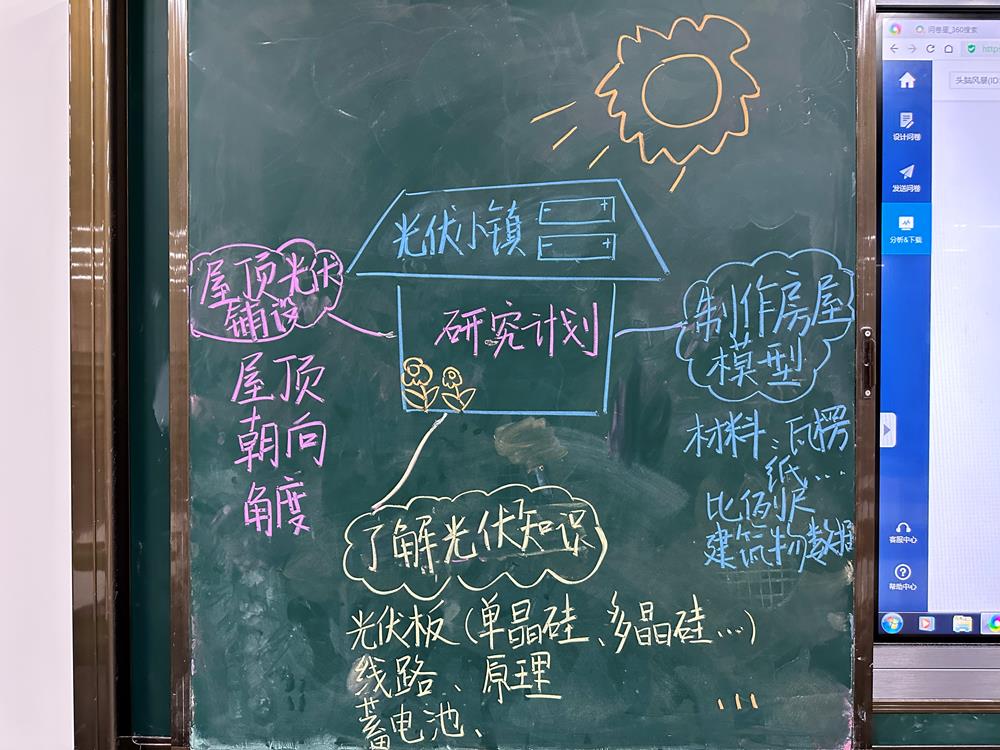 光伏小镇
- +
- +
研究计划
屋顶光伏
铺设
屋顶
朝向
角度
制作房屋
模型
材料:瓦楞
纸...
比例尺
建筑物数据
了解光伏知识
光伏板(单晶硅、多晶硅...)
线路、原理
蓄电池、
问卷星_360搜索
https
头脑风暴(ID:
设计问卷
发送问卷
分析&下载
客服中心
帮助中心